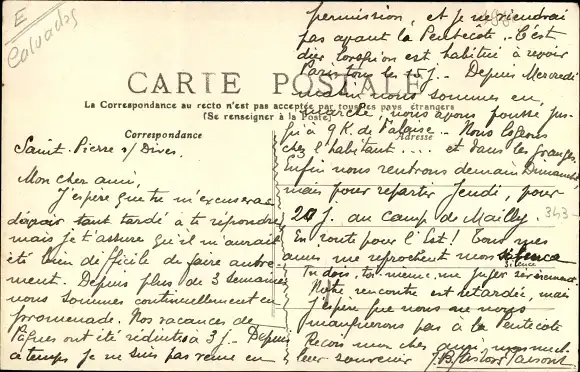 E
Calvados
CARTE POSTALE
La Correspondance au recto n'est pas acceptée par tous les pays étrangers
(Se renseigner à la Poste)
Correspondance
Adresse
Saint-Pierre s/ Dives.
Mon cher ami,
J'espère que tu m'excuseras
d'avoir tant tardé à te répondre
mais je t'assure qu'il m'aurait
été bien difficile de faire autre-
ment. Depuis plus de 3 semaines
nous sommes continuellement en
promenade. Nos vacances de
Pâques ont été réduites à 3 j. - Depuis
ce temps je ne suis pas revenu en
permission, et je ne viendrai
pas avant la Pentecôte. - C'est
dur lorsqu'on est habitué à revoir
Paris tous les 15 j. - Depuis Mercredi
matin nous sommes en
marche, nous avons poussé jus-
qu'à 9 K. de Falaise. - Nous logeons
chez l'habitant .... et dans les granges
Enfin nous rentrons demain Dimanche
mais pour repartir Jeudi, pour
20 j. au camp de Mailly.
343
En route pour l'Est! Tous mes
amis me reprochent mon silence
silence
Tu dois, toi-même, me juger sévèrement.
Notre rencontre est retardée, mais
j'espère que nous ne nous
manquerons pas à la Pentecôte
Reçois mon cher ami mon meil-
leur souvenir